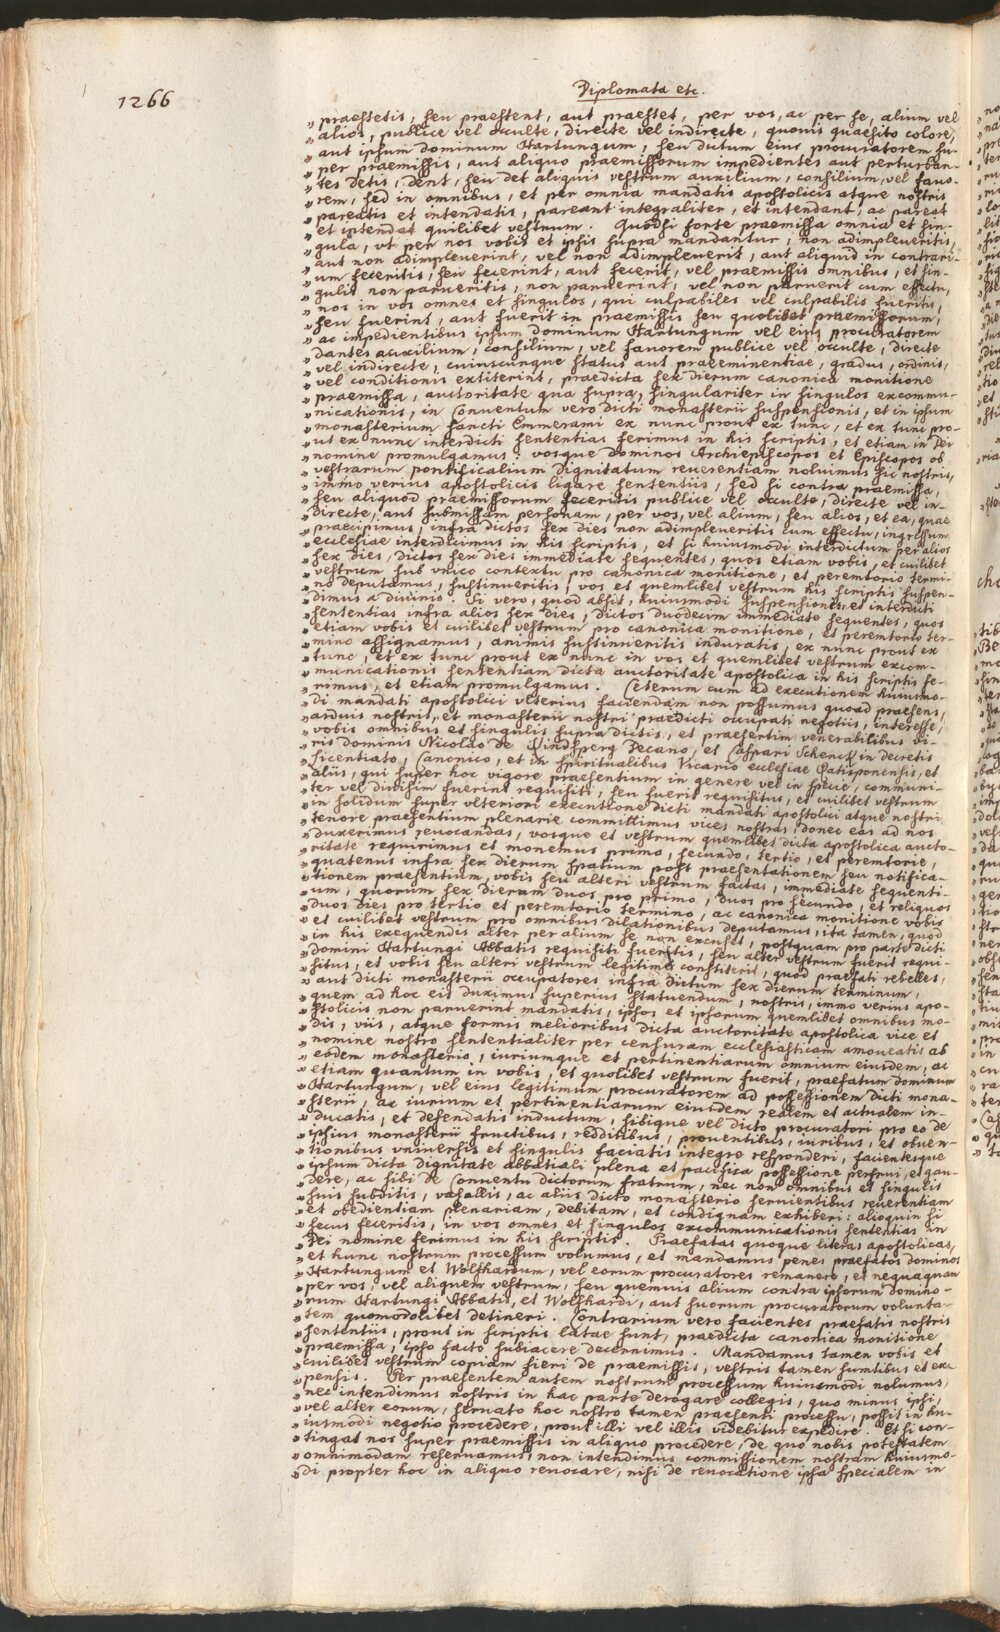 1266
Diplomata etc.
„ praestetis, seu praestent, aut praestet, per vos, ac per se, alium vel
„ alios, publice vel occulte, directe vel indirecte, quouis quaesito colore,
„ aut ipsum dominum Hartungum, seu dictum eius procuratorem su-
„ per praemissis, aut aliquo praemissorum impedientes aut perturban-
„ tes detis, dent, seu det aliquis vestrum auxilium, consilium, vel fauo-
„ rem, sed in omnibus, et per omnia mandatis apostolicis atque nostris
„ pareatis et intendatis, pareant integraliter, et intendant, ac pareat
„ et intendat quilibet vestrum. Quodsi forte praemissa omnia et sin-
„ gula, vt per nos vobis et ipsis supra mandantur, non adimpleueritis,
„ aut non adimpleuerint, vel non adimpleuerit, aut aliquid in contrari-
„ um feceritis, seu fecerint, aut fecerit, vel praemissis omnibus, et sin-
„ gulis non parueritis, non paruerint, vel non paruerit cum effectu,
„ nos in vos omnes et singulos, qui culpabiles vel culpabilis fueritis,
„ seu fuerint, aut fuerit in praemissis seu quolibet praemissorum,
„ ac impedientibus ipsum dominum Hartungum vel eius procuratorem
„ dantes auxilium, consilium, vel fauorem publice vel occulte, directe
„ vel indirecte, cuiuscunque status aut praeeminentiae, gradus, ordinis,
„ vel conditionis extiterint, praedicta sex dierum canonica monitione
„ praemissa, auctoritate qua supra, singulariter in singulos excommu-
„ nicationis, in Conuentum vero dicti monasterii suspensionis, et in ipsum
„ monasterium sancti Emmerami ex nunc prout ex tunc, et ex tunc pro-
„ ut ex nunc interdicti sententias ferimus in his scriptis, et etiam in Dei
„ nomine promulgamus: vosque dominos Archiepiscopos et Episcopos ob
„ vestrarum pontificalium dignitatum reuerentiam noluimus sic nostris,
„ immo verius apostolicis ligare sententiis, sed si contra praemissa,
„ seu aliquod praemissorum feceritis publice vel occulte, directe vel in-
„ directe, aut submissam personam, per vos, vel alium, seu alios, et ea, quae
„ praecipimus, infra dictos sex dies non adimpleueritis cum effectu, ingressum
„ ecclesiae interdicimus in his scriptis, et si huiusmodi interdictum per alios
„ sex dies, dictos sex dies immediate sequentes, quos etiam vobis, et cuilibet
„ vestrum sub vnico contextu pro canonica monitione, et peremtorio termi-
„ no deputamus, sustinueritis, vos et quemlibet vestrum his scriptis suspen-
„ dimus a diuinis. Si vero, quod absit, huiusmodi suspensionis et interdicti
„ sententias infra alios sex dies, dictos duodecim immediate sequentes, quos
„ etiam vobis et cuilibet vestrum pro canonica monitione, et peremtorio ter-
„ mino assignamus, animis sustinueritis induratis, ex nunc prout ex
„ tunc, et ex tunc prout ex nunc in vos et quemlibet vestrum excom-
„ municationis sententiam dicta auctoritate apostolica in his scriptis fe-
„ rimus, et etiam promulgamus. Ceterum cum ad executionem huiusmo-
„ di mandati apostolici vlterius faciendam non possumus quoad praesens,
„ arduis nostris, et monasterii nostri praedicti occupati negotiis, interesse,
„ vobis omnibus et singulis supra dictis, et praesertim venerabilibus vi-
„ ris dominis Nicolao de Kindsperg Decano, et Caspari Schenck in decretis
„ licentiato, Canonico, et in spiritualibus Vicario ecclesiae Ratisponensis, et
„ aliis, qui super hoc vigore praesentium in genere vel in specie, communi-
„ ter vel diuisim fuerint requisiti, seu fuerit requisitus, et cuilibet vestrum
„ in solidum super vlteriori executione dicti mandati apostolici atque nostri
„ tenore praesentium plenarie committimus vices nostras, donec eas ad nos
„ duxerimus reuocandas, vosque et vestrum quemlibet dicta apostolica aucto-
„ ritate requirimus et monemus primo, secundo, tertio, et peremtorie,
„ quatenus infra sex dierum spatium post praesentationem seu notifica-
„ tionem praesentium, vobis seu alteri vestrum factas, immediate sequenti-
„ um, quorum sex dierum duos pro primo, duos pro secundo, et reliquos
„ duos dies pro tertio et peremtorio termino, ac canonica monitione vobis
„ et cuilibet vestrum pro omnibus dilationibus deputamus, ita tamen, quod
„ in his exequendis alter per alium se non excuset, postquam pro parte dicti
„ domini Hartungi Abbatis requisiti fueritis, seu alter vestrum fuerit requi-
„ situs, et vobis seu alteri vestrum legitime constiterit, quod praefati rebelles,
„ aut dicti monasterii occupatores infra dictum sex dierum terminum,
„ quem ad hoc eis duximus superius statuendum, nostris, immo verius apo-
„ stolicis non paruerint mandatis, ipsos et ipsorum quemlibet omnibus mo-
„ dis, viis, atque formis melioribus dicta auctoritate apostolica vice et
„ nomine nostro sententialiter per censuram ecclesiasticam amoueatis ab
„ eodem monasterio, iuriumque et pertinentiarum omnium eiusdem, ac
„ etiam quantum in vobis, et quolibet vestrum fuerit, praefatum dominum
„ Hartungum, vel eius legitimum procuratorem ad possessionem dicti mona-
„ sterii, ac iurium et pertinentiarum eiusdem realem et actualem in-
„ ducatis, et defendatis inductum, sibique vel dicto procuratori pro eo de
„ ipsius monasterii fructibus, redditibus, prouentibus, iuribus, et obuen-
„ tionibus vniuersis et singulis faciatis integre responderi, facientesque
„ ipsum dicta dignitate abbatiali plena et pacifica possessione perfrui, et gau-
„ dere, ac sibi de Conuentu dictorum fratrum, nec non omnibus et singulis
„ suis subditis, vasallis, ac aliis dicto monasterio seruientibus reuerentiam
„ et obedientiam plenariam, debitam, et condignam exhiberi: alioquin si
„ secus feceritis, in vos omnes et singulos excommunicationis sententias in
„ Dei nomine ferimus in his scriptis. Praefatas quoque literas apostolicas,
„ et hunc nostrum processum volumus, et mandamus penes praefatos dominos
„ Hartungum et Wolfhardum, vel eorum procuratores remanere, et nequaquam
„ per vos, vel aliquem vestrum, seu quemuis alium contra ipsorum domino-
„ rum Hartungi Abbatis, et Wolfhardi, aut suorum procuratorum volunta-
„ tem quomodolibet detineri. Contrarium vero facientes praefatis nostris
„ sententiis, prout in scriptis latae sunt, praedicta canonica monitione
„ praemissa, ipso facto subiacere decernimus. Mandamus tamen vobis et
„ cuilibet vestrum copiam fieri de praemissis, vestris tamen sumtibus et ex-
„ pensis. Per praesentem autem nostrum processum huiusmodi nolumus,
„ nec intendimus nostris in hac parte derogare collegis, quo minus ipsi,
„ vel alter eorum, seruato hoc nostro tamen praesenti processu, possit in hu-
„ iusmodi negotio procedere, prout illi vel illis videbitur expedire. Et si con-
„ tingat nos super praemissis in aliquo procedere, de quo nobis potestatem
„ omnimodam reseruamus, non intendimus commissionem nostram huiusmo-
„ di propter hoc in aliquo reuocare, nisi de reuocatione ipsa specialem in